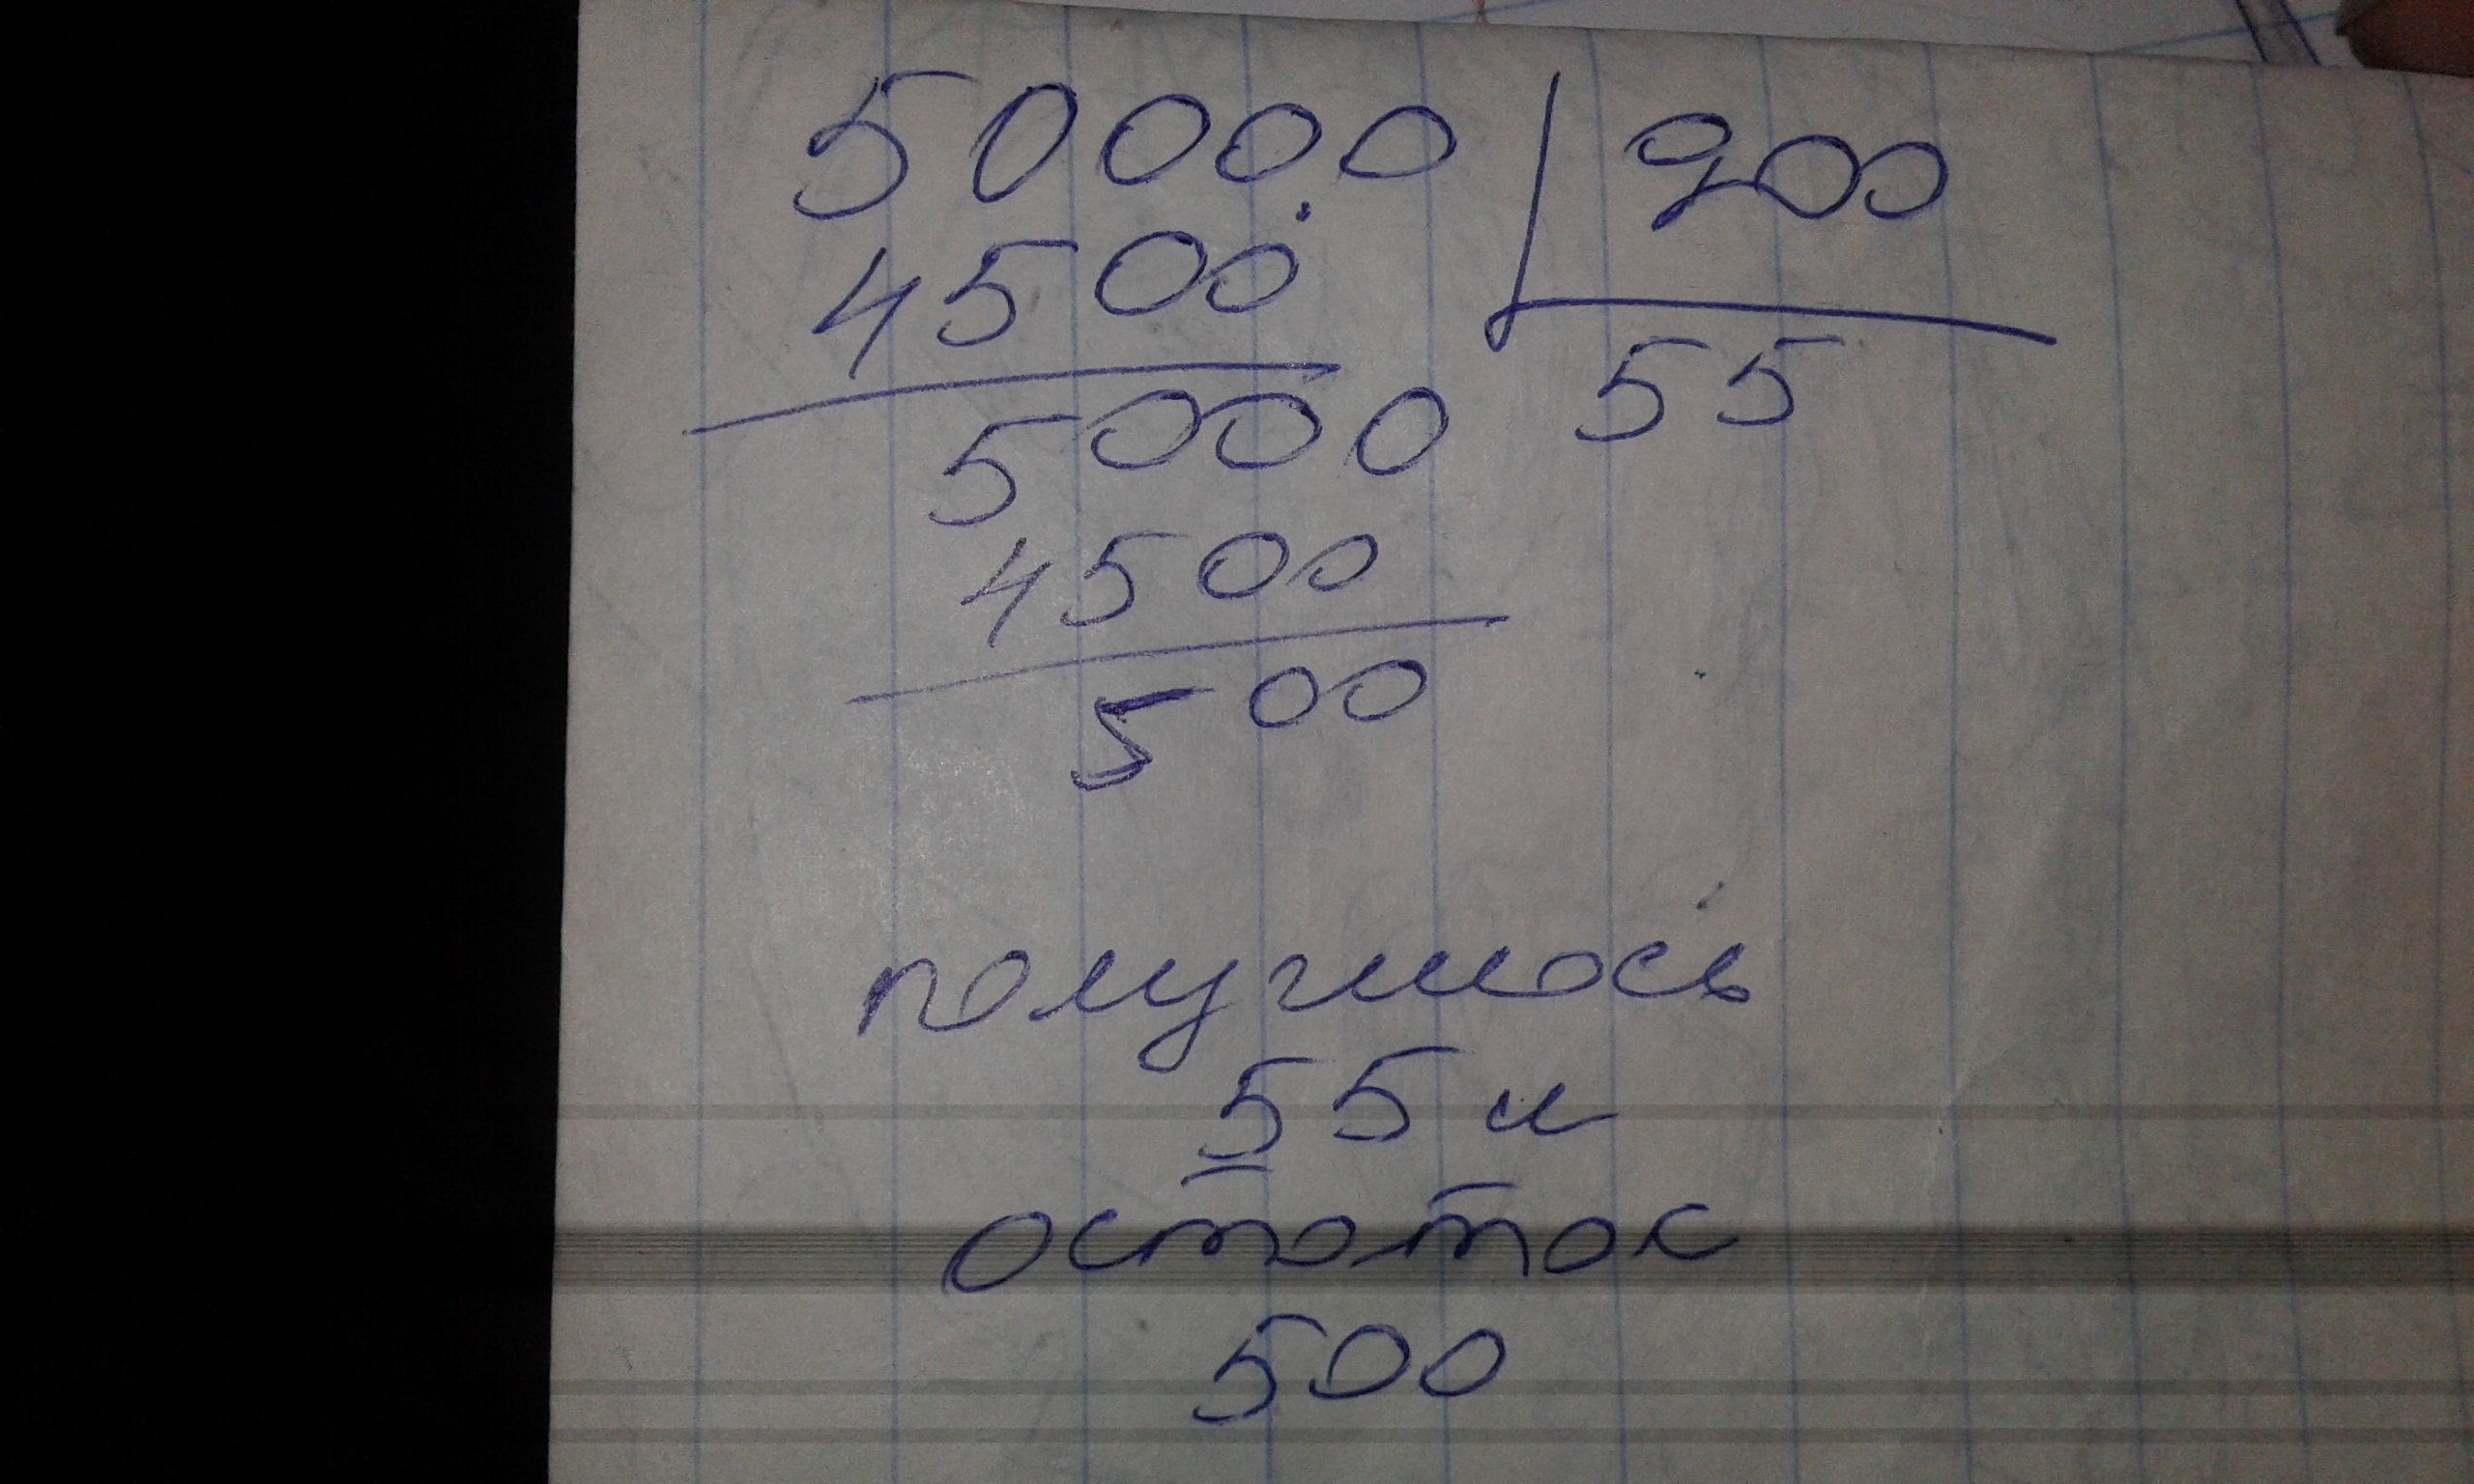 50000 900
4500
55
5000
4500
500
получилось
55 и
остаток
500